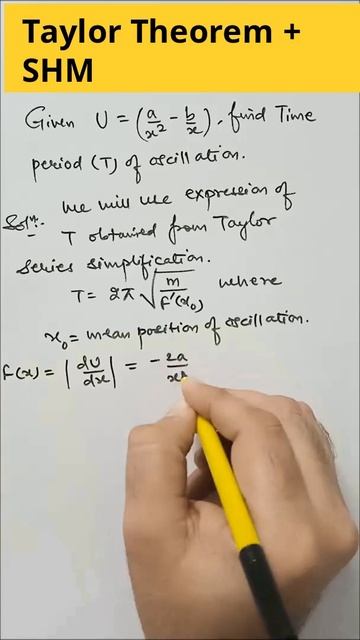 Taylor Theorem +
SHM
Given U = (a/x² - b/x), find Time
period (T) of oscillation.
Solⁿ:- We will use expression of
T obtained from Taylor
series simplification.
T = 2π √(m/F'(x₀)) where
x₀ = mean position of oscillation.
F(x) = |dU/dx| = -2a/x